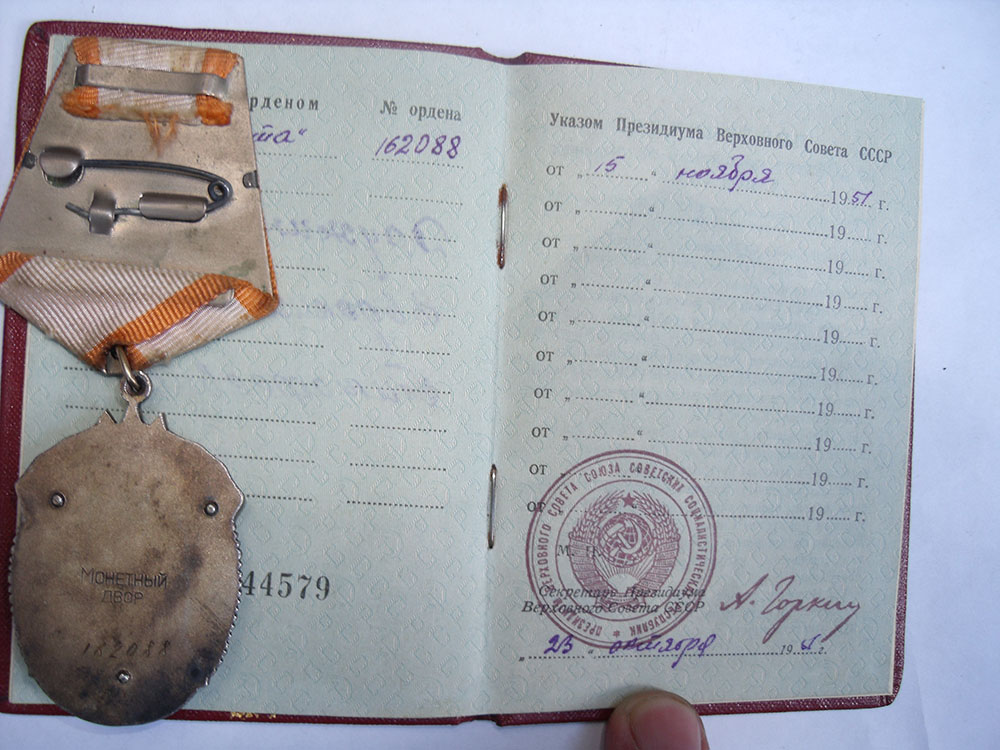 рденом № ордена
та" 162088
44579
МОНЕТНЫЙ
ДВОР
Указом Президиума Верховного Совета СССР
от „ 15 “ ноября 1951 г.
от „ “ 19 г.
от „ “ 19 г.
от „ “ 19 г.
от „ “ 19 г.
от „ “ 19 г.
от „ “ 19 г.
от „ “ 19 г.
от 19 г.
от 19 г.
ПРЕЗИДИУМ ВЕРХОВНОГО СОВЕТА СОЮЗА СОВЕТСКИХ СОЦИАЛИСТИЧЕСКИХ РЕСПУБЛИК
М. П.
Секретарь Президиума
Верховного Совета СССР А. Горкин
„ 23 “ октября 19 г.